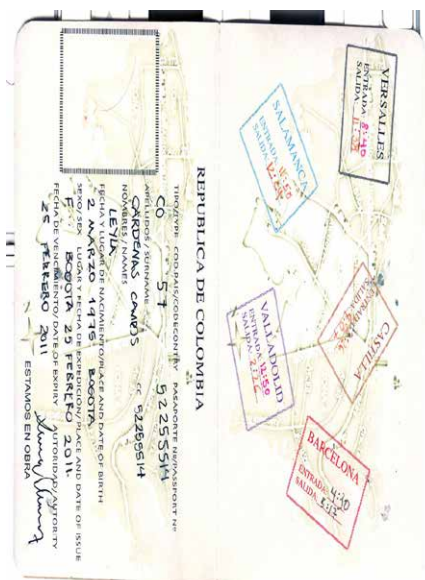 VERSALLES
ENTRADA: 8:40
SALIDA:
SALAMANCA
ENTRADA
SALIDA:
CASTILLA
VALLADOLID
ENTRADA: 12:50
SALIDA:
BARCELONA
ENTRADA: 4:40
SALIDA:
REPUBLICA DE COLOMBIA
TIPO/TYPE COD.PAIS/CODECONTRY PASAPORTE Nº/PASSPORT Nº
CO 57 52255514
APELLIDOS / SURNAME
CÁRDENAS CAMPOS CC 52255514
NOMBRES / NAMES
LEYLA
FECHA Y LUGAR DE NACIMIENTO/PLACE AND DATE OF BIRTH
2 MARZO 1975 BOGOTA
SEXO/SEX LUGAR Y FECHA DE EXPEDICION/PLACE AND DATE OF ISSUE
F BOGOTA 25 FEBRERO 2011.
FECHA DE VENCIMIENTO/ DATE OF EXPIRY AUTORIDAD/AUTORITY
25 FEBRERO 2011
ESTAMOS EN OBRA